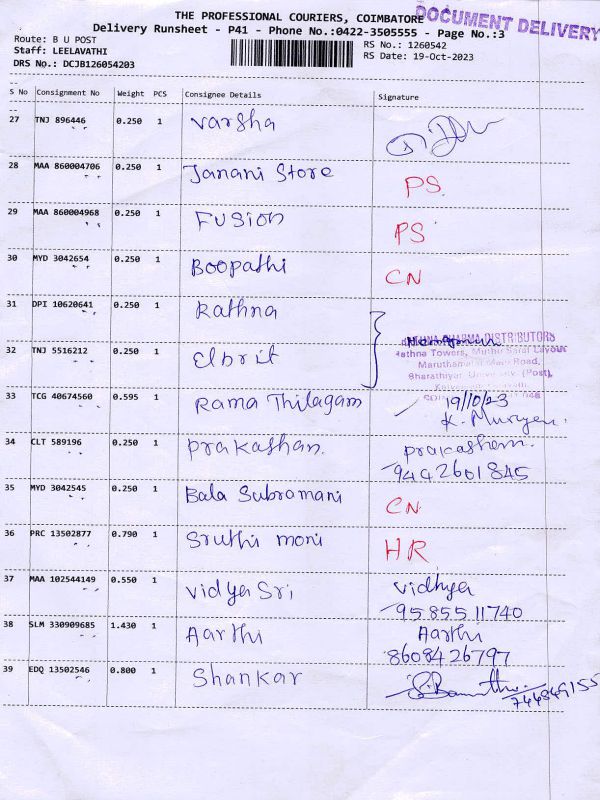 THE PROFESSIONAL COURIERS, COIMBATORE
DOCUMENT DELIVERY
Delivery Runsheet - P41 - Phone No.:0422-3505555 - Page No.:3
Route: B U POST
Staff: LEELAVATHI
DRS No.: DCJB126054203
RS No.: 1260542
RS Date: 19-Oct-2023
S No Consignment No Weight PCS Consignee Details Signature
27 TNJ 896446 0.250 1 Varsha
28 MAA 860004706 0.250 1 Janani Store PS
29 MAA 860004968 0.250 1 FUSION PS
30 MYD 3042654 0.250 1 Boopathi CN
31 DPI 10620641 0.250 1 Rathna
RATHNA PHARMA DISTRIBUTORS
Rathna Towers, Muthu Saraf Layout
32 TNJ 5516212 0.250 1 Elbrit
Maruthamalai Main Road,
Bharathiyar University (Post),
33 TCG 40674560 0.595 1 Rama Thilagam 19/10/23
K. Murugen
34 CLT 589196 0.250 1 Prakashan. Prakashem.
9442601845
35 MYD 3042545 0.250 1 Bala Subramani CN
36 PRC 13502877 0.790 1 Sruthi moni HR
37 MAA 102544149 0.550 1 Vidya Sri, Vidhya
9585511740
38 SLM 330909685 1.430 1 Aarthi Aarthi
8608426797
39 EDQ 13502546 0.800 1 Shankar